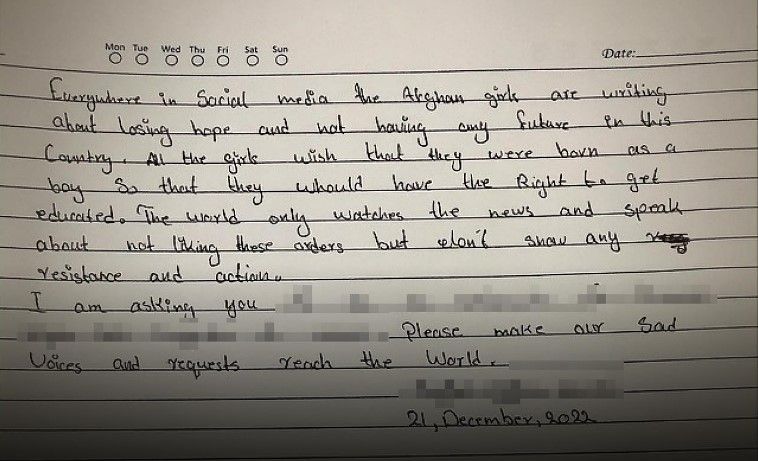 Mon Tue Wed Thu Fri Sat Sun
Date:
Everywhere in Social media the Afghan girls are writing
about losing hope and not having any future in this
Country. All the girls wish that they were born as a
boy So that they whould have the Right to get
educated. The world only watches the news and speak
about not liking these orders but don't show any
resistance and action.
I am asking you
Please make our Sad
Voices and requests reach the World.
21, December, 2022